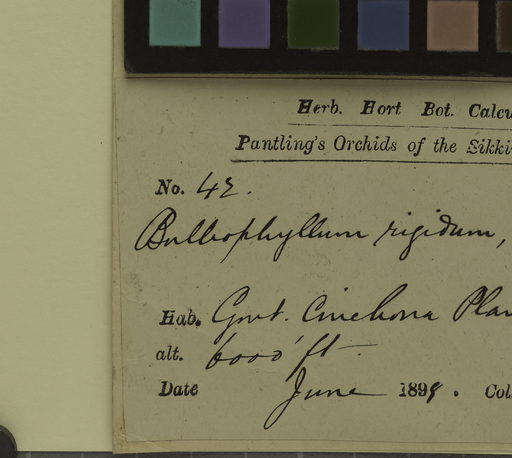 Herb. Hort Bot. Calcu
Pantling's Orchids of the Sikki
No. 42.
Bulbophyllum rigidum,
Hab. Govt. Cinchona Plan
alt. 6000' ft.
Date June 1898. Col